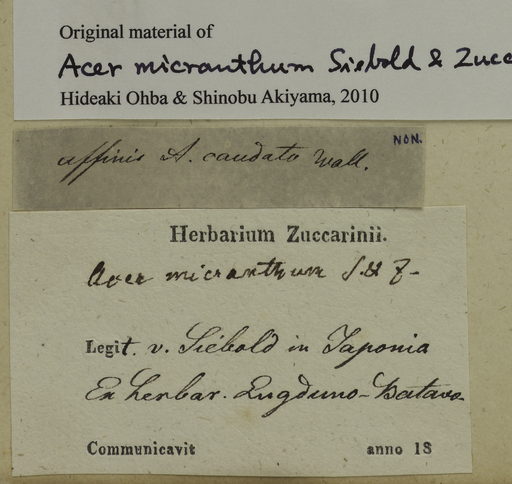 Original material of
Acer micranthum Siebold & Zucc
Hideaki Ohba & Shinobu Akiyama, 2010
NON.
affinis A. caudato Wall.
Herbarium Zuccarinii.
Acer micranthum S. & Z-
Legit. v. Siebold in Japonia
Ex herbar. Lugduno-Batavo
Communicavit anno 18